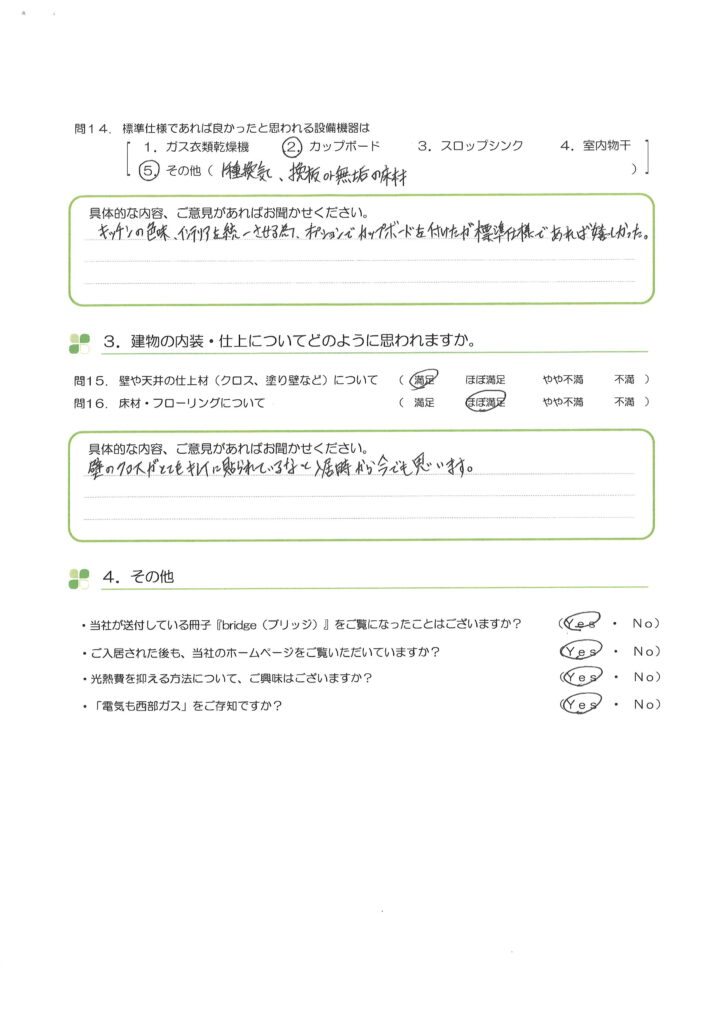 問14．標準仕様であれば良かったと思われる設備機器は
1．ガス衣類乾燥機　2．カップボード　3．スロップシンク　4．室内物干
5．その他（1種換気、挽板の無垢の床材）
具体的な内容、ご意見があればお聞かせください。
キッチンの色味、インテリアを統一させる為、オプションでカップボードを付けたが標準仕様であれば嬉しかった。
3．建物の内装・仕上についてどのように思われますか。
問15．壁や天井の仕上材（クロス、塗り壁など）について　（　満足　ほぼ満足　やや不満　不満　）
問16．床材・フローリングについて　（　満足　ほぼ満足　やや不満　不満　）
具体的な内容、ご意見があればお聞かせください。
壁のクロスがとてもキレイに貼られているなと入居時から今でも思います。
4．その他
・当社が送付している冊子『bridge（ブリッジ）』をご覧になったことはございますか？　（Yes　・　No）
・ご入居された後も、当社のホームページをご覧いただいていますか？　（Yes　・　No）
・光熱費を抑える方法について、ご興味はございますか？　（Yes　・　No）
・「電気も西部ガス」をご存知ですか？　（Yes　・　No）